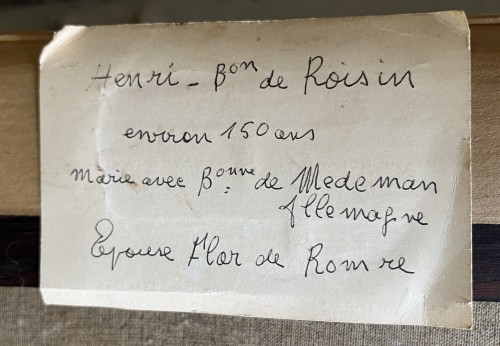 Henri - Bon de Roisin
environ 150 ans
marie avec Bonne de Medeman
Allemagne
Epouse Flor de Romre